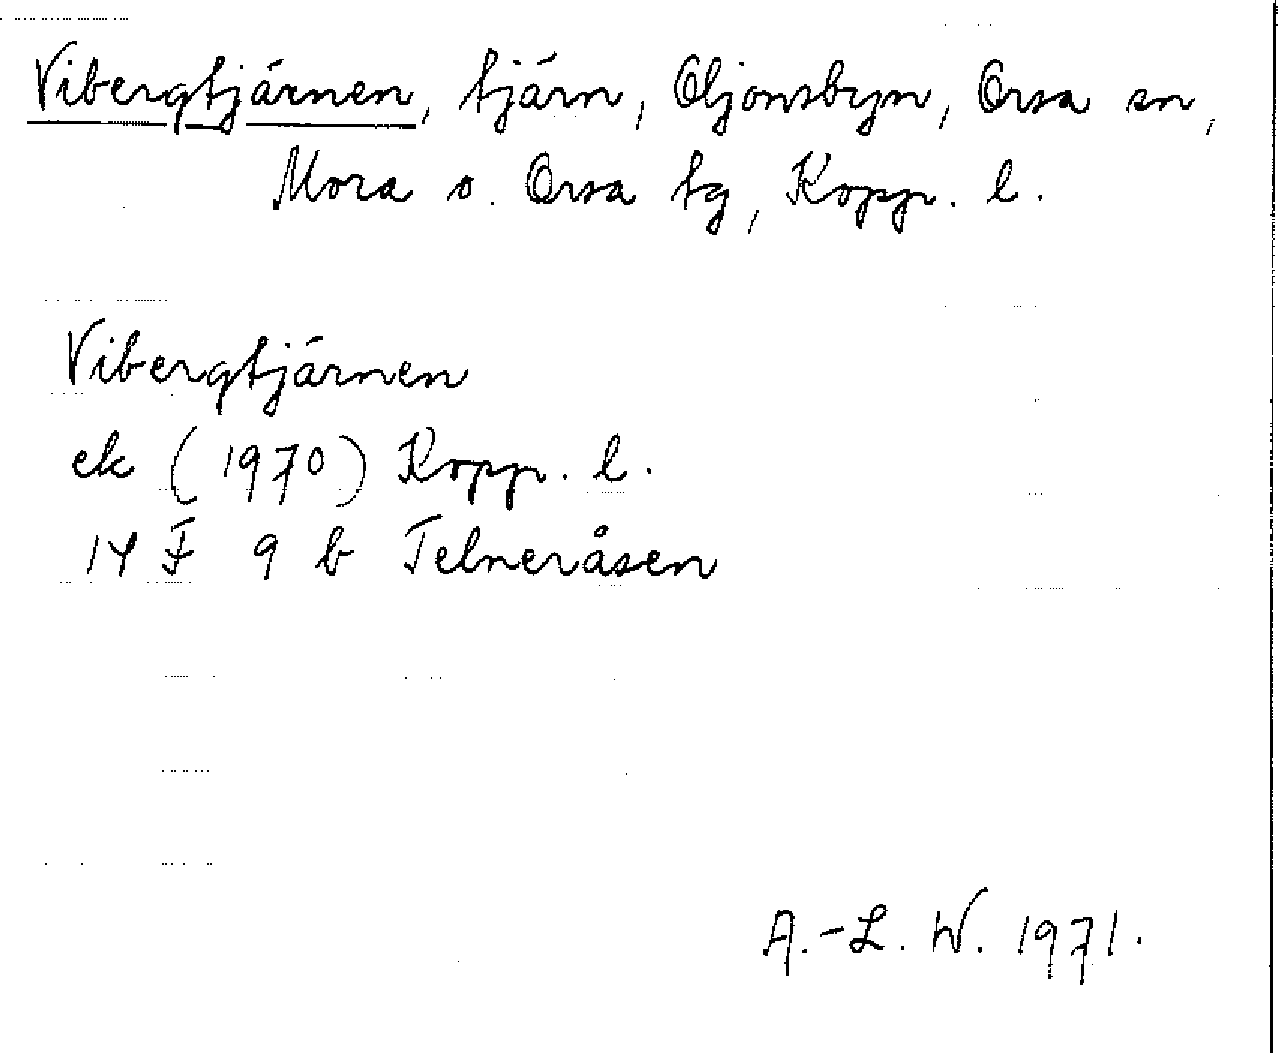 Vibergtjärnen, tjärn, Oljonsbyn, Orsa sn,
Mora o. Orsa tg, Kopp. l.
Vibergtjärnen
ek (1970) Kopp. l.
14 F 9 b Telneråsen
A.-L. W. 1971.